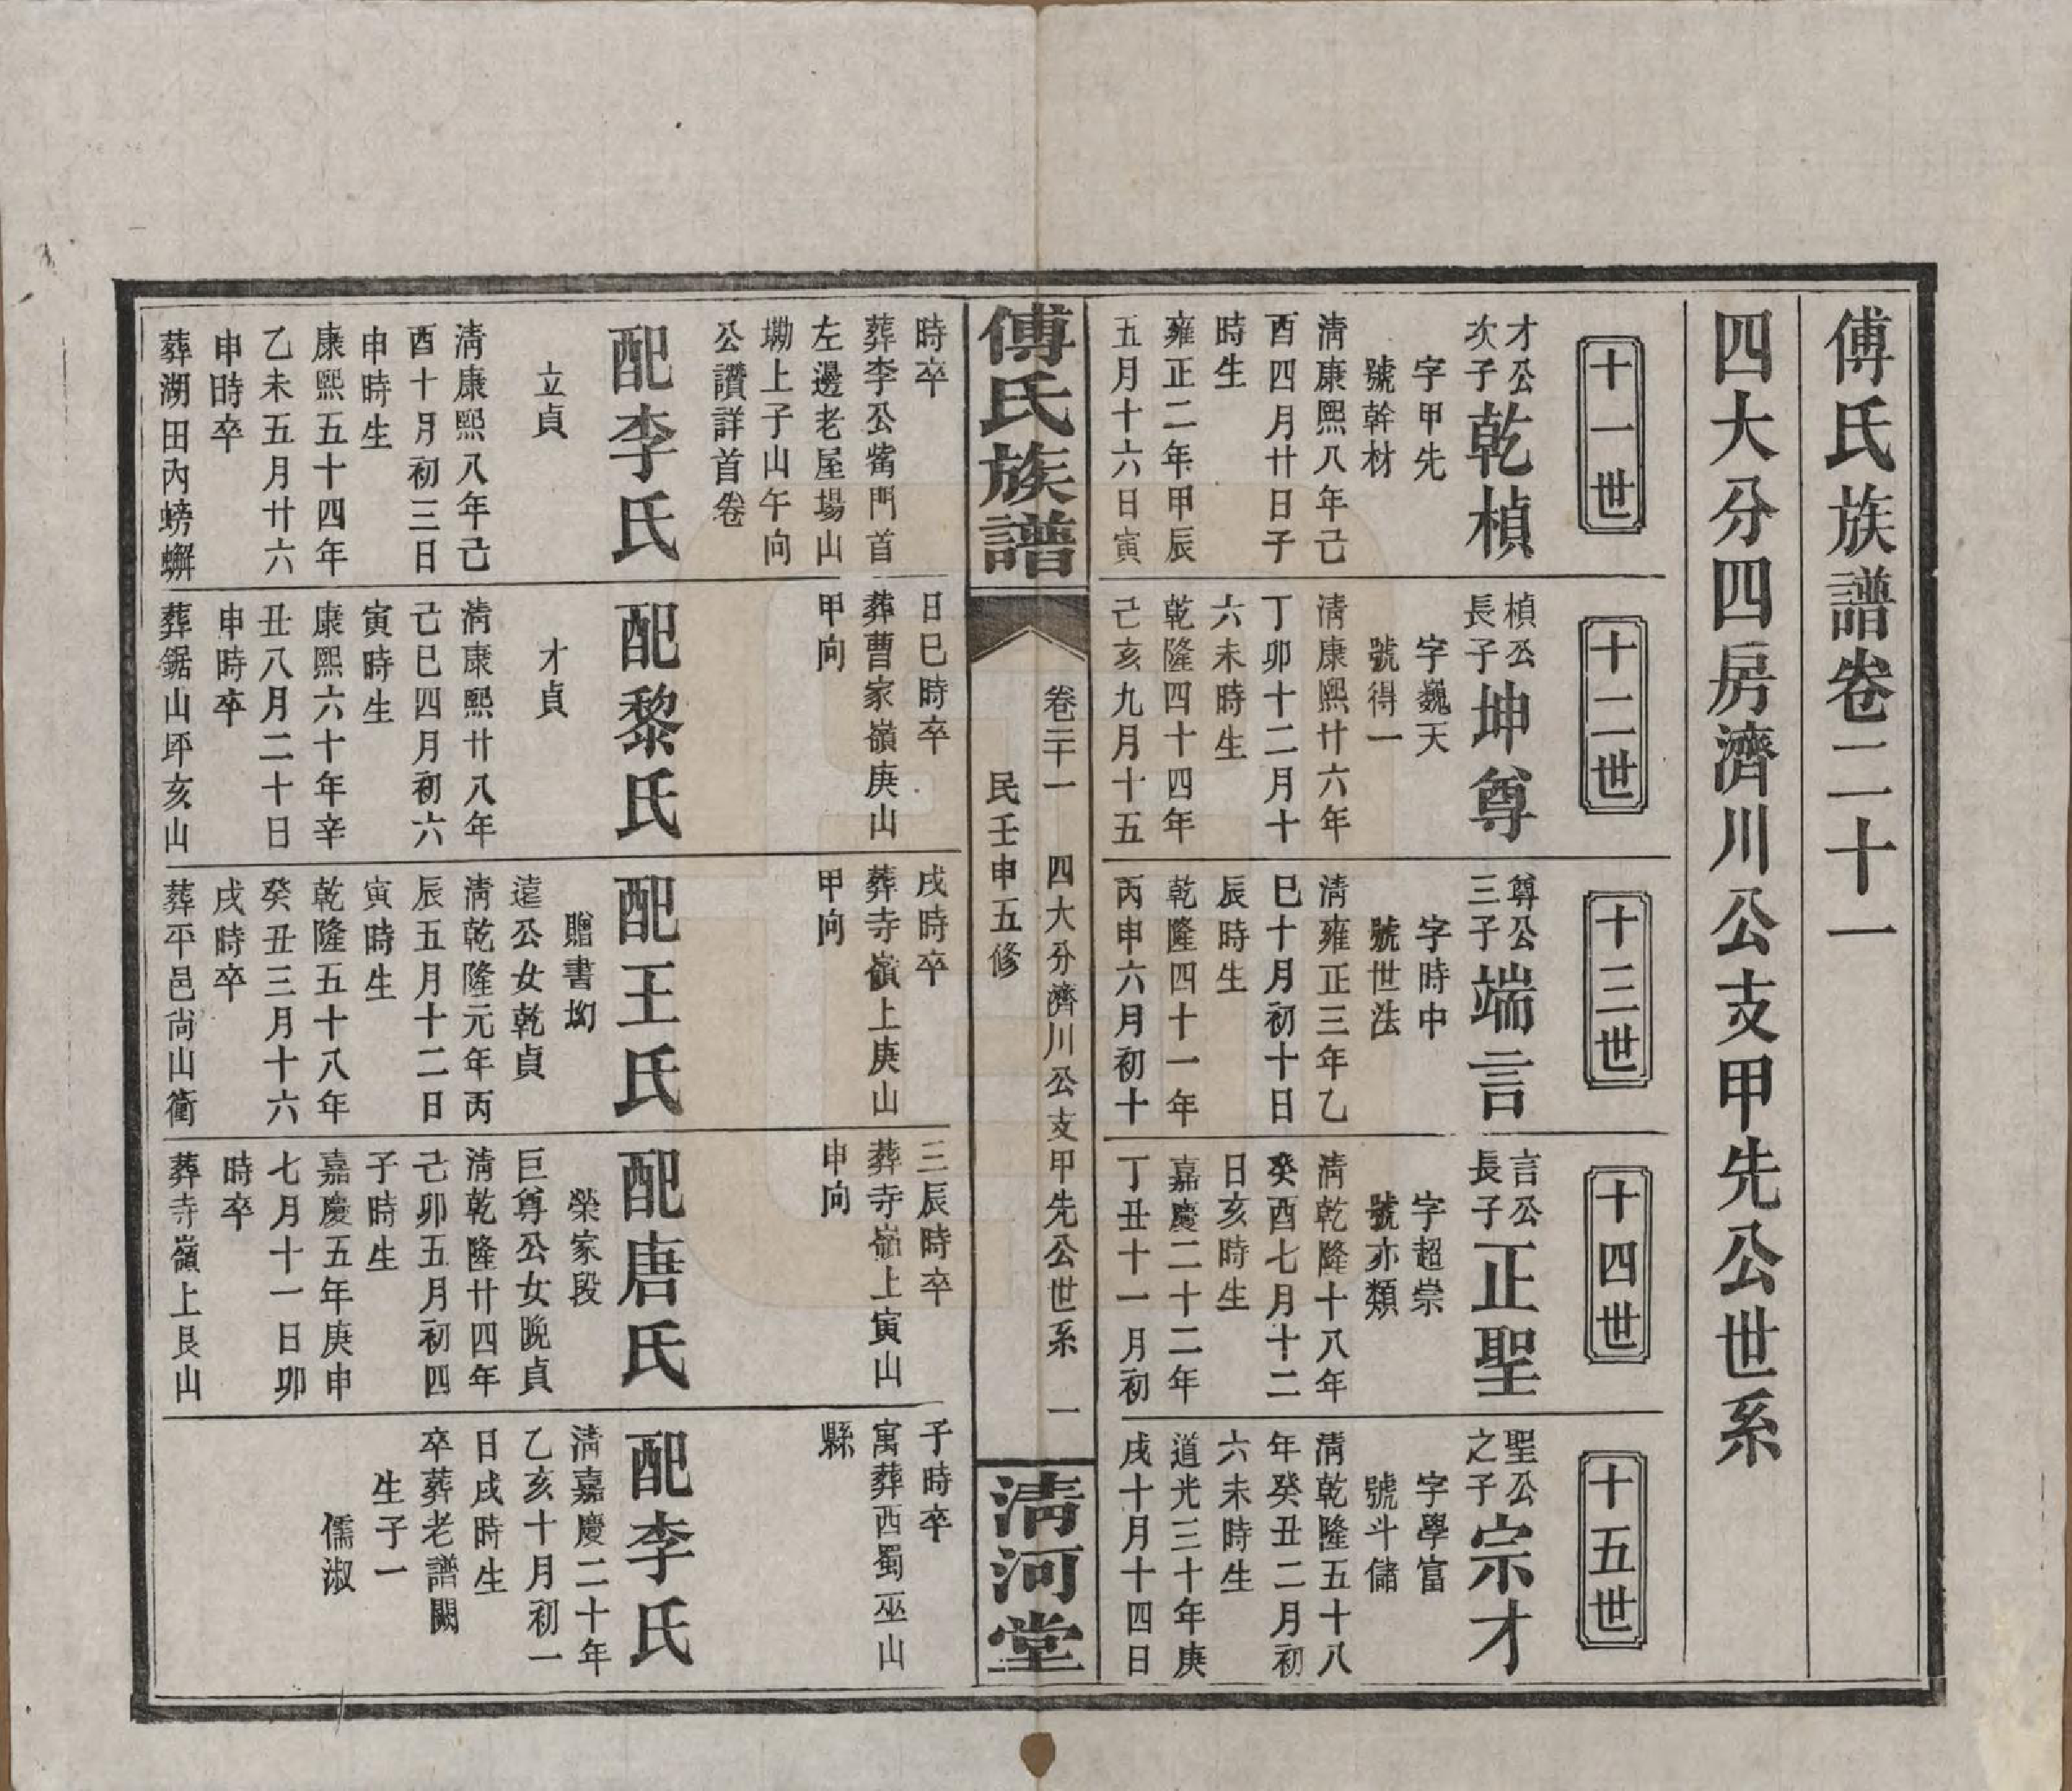 傅氏族譜卷二十一
四大分四房濟川公支甲先公世系
十一世
才公
次子
乾楨
字甲先
號幹材
淸康熙八年己
酉四月廿日子
時生
雍正二年甲辰
五月十六日寅
十二世
楨公
長子
坤尊
字巍天
號得一
淸康熙廿六年
丁卯十二月十
六未時生
乾隆四十四年
己亥九月十五
十三世
尊公
三子
端言
字時中
號世法
淸雍正三年乙
巳十月初十日
辰時生
乾隆四十一年
丙申六月初十
十四世
言公
長子
正聖
字超崇
號亦類
淸乾隆十八年
癸酉七月十二
日亥時生
嘉慶二十二年
丁丑十一月初
十五世
聖公
之子
宗才
字學富
號斗儲
淸乾隆五十八
年癸丑二月初
六未時生
道光三十年庚
戌十月十四日
傅氏族譜
卷二十一
四大分濟川公支甲先公世系
一
民壬申五修
淸河堂
時卒
葬李公觜門首
左邊老屋場山
墈上子山午向
公讚詳首卷
配李氏
立貞
淸康熙八年己
酉十月初三日
申時生
康熙五十四年
乙未五月廿六
申時卒
葬湖田內螃蠏
日巳時卒
葬曹家嶺庚山
甲向
配黎氏
才貞
淸康熙廿八年
己巳四月初六
寅時生
康熙六十年辛
丑八月二十日
申時卒
葬鋸山坪亥山
戌時卒
葬寺嶺上庚山
甲向
配王氏
贈書㘭
遠公女乾貞
淸乾隆元年丙
辰五月十二日
寅時生
乾隆五十八年
癸丑三月十六
戌時卒
葬平邑尙山衝
三辰時卒
葬寺嶺上寅山
申向
配唐氏
榮家段
巨尊公女晚貞
淸乾隆廿四年
己卯五月初四
子時生
嘉慶五年庚申
七月十一日卯
時卒
葬寺嶺上艮山
子時卒
寓葬西蜀巫山
縣
配李氏
淸嘉慶二十年
乙亥十月初一
日戌時生
卒葬老譜闕
生子一
儒淑